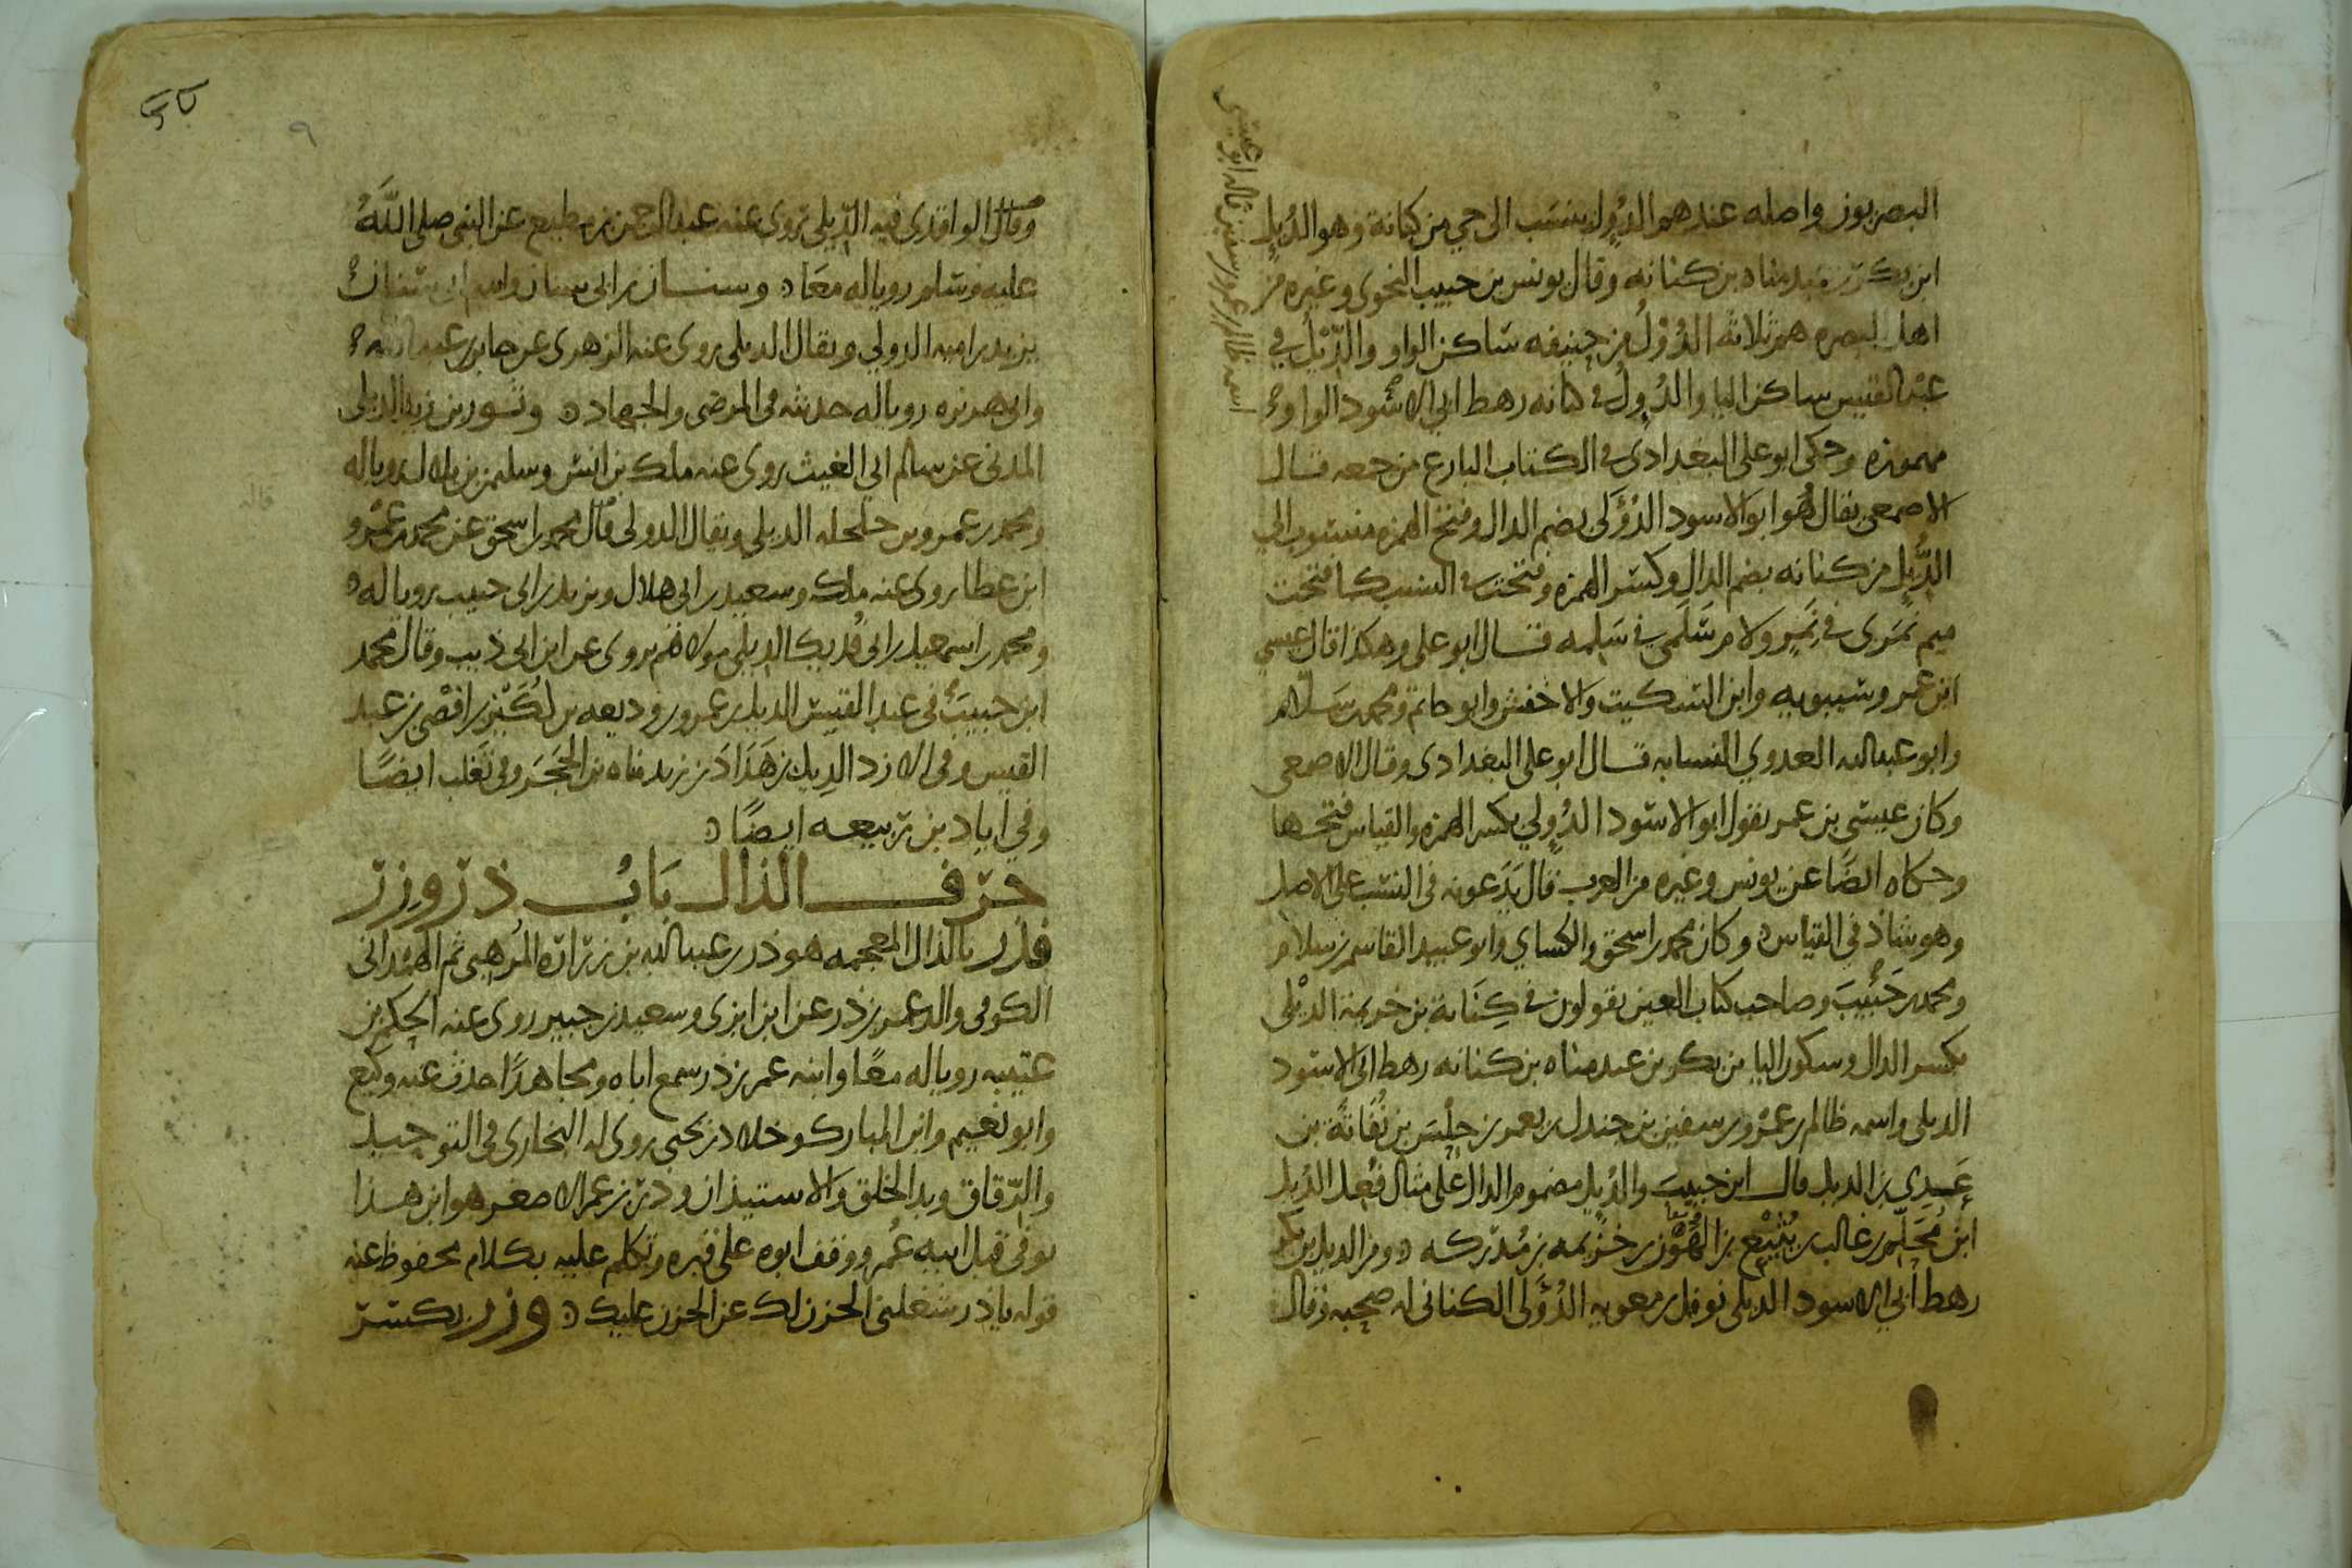 البصريون واصله عندهم الدؤل ينسب الى حي من كنانة وهو الدُئِل
ابن بكر بن عبد مناه بن كنانه وقال يونس بن حبيب النحوى وغيره من
اهل البصره هم ثلاثة الدُوْل من حنيفه ساكن الواو والدِّيْل في
عبد القيس ساكن اليا والدُوِل في كنانه رهط ابي الاسود الواو
مهموزه وحكى ابو على البغدادى في الكتاب البارع من جمعه قال
الاصمعى يقال هُو ابو الاسود الدُؤَلى بضم الدال وفتح الهمزه منسوب الى
الدُّئِل من كنانه بضم الدال وكسر الهمزه وفتحت في النسب كما فتحت
ميم نَمَرى في نَمِر ولام سَلَمى في سَلِمه قال ابو على وهكذا قال عيسى
ابن عمر وسيبويه وابن السكيت والاخفش وابو حاتم ومحمد بن سَلّام
وابو عبد الله العدوي النسابه قال ابو على البغدادى وقال الاصمعى
وكان عيسى بن عمر يقول ابو الاسود الدُؤلي بكسر الهمزه والقياس فتحها
وحكاه ايضًا عن يونس وغيره من العرب قال يَدَعونه في النسب على الاصل
وهو شاذ في القياس ه وكان محمد بن اسحق والكساي وابو عبيد القاسم بن سلام
ومحمد بن حَبِيبَ وصاحب كتاب العين يقولون في كِنَانة بن خزيمة الدِيْلى
بكسر الدال وسكون اليا بن بكر بن عبد مناه بن كنانه رهط ابى الاسود
الديلى واسمه ظالم بن عمْرو بن سفين بن جندل بن يعمر بن حِلْسَ بن نُفَاثَة بن
عَدِي بن الديل قال ابن حبيبَ والدُئِل مضموم الدال على مثال فُعِل الدُئِل
ابن مُحَلِّم بن غالب بن يُثَيْع بن الهُوْن بن خزيمه بن مُدركه ه ومن الديل بن بكر
رهط ابي الاسود الديلى نوفل بن معويه الدُؤَلى الكنانى له صحبه وقال
اسمه ظالم بن عمرو بن سفين قاله ابو عيسى
٩
وقال الواقدى فيه الدِّيلى روى عنه عبد الرحمن بن مطيع عن النبي صلى اللَّهُ
عليه وسلم رويا له معًا ه وسنان بن ابى سنان واسم ابى سنان
يزيد بن اميه الدولي ويقال الديلى روى عنه الزهرى عن جابر بن عبد الله
وابى هريره رويا له حديثه في المرضى والجهاد ه وثور بن زيد الديلى
المدنى عن سالم ابي الغيث روى عنه ملك بن انس وسليمن بن بلال رويا له
ومحمد بن عمرو بن حلحله الديلى ويقال الدولى قال محمد بن اسحق عن محمد بن عمْرو
ابن عطا روى عنه ملك وسعيد بن ابى هلال ويزيد بن ابى حبيب رويا له ه
ومحمد بن اسمعيل بن ابى فُديك الديلى مولاهم يروى عن ابن ابى ذيب وقال محمد
ابن حبيبَ في عبد القيس الديل بن عمرو بن وديعه بن لُكَيْز بن افْصى بن عبد
القيس وفي الازد الدِيل بن هَدَادَ بن زيد مناه بن الحَجَر وفي تَغلب ايضًا
وفي اياد بن ربيعه ايضًا ه
حَرف الذال بَابُ ذر وزر
فذر بالذال المعجمه هو ذر بن عبد الله بن زرارة المُرهبى ثم الهمْدانى
الكوفي والد عمر بن ذر عن ابن ابزى وسعيد بن جبير روى عنه الحكم بن
عتيبه رويا له معًا وابنه عمر بن ذر سمع اباه ومجاهدًا حدث عنه وكيع
وابو نعيم وابن المبارك وخلاد بن يحيى روى له البخارى في التوحيد
والرقاق وبدا الخلق والاستيذان وذر بن عمر الاصغر هو ابن هذا
توفي قبل ابيه عُمر ووقف ابوه على قبره وتكلم عليه بكلام محفوظ عنه
قوله ياذر شغلنى الحزن لك عن الحزن عليك ه وزر بكسر